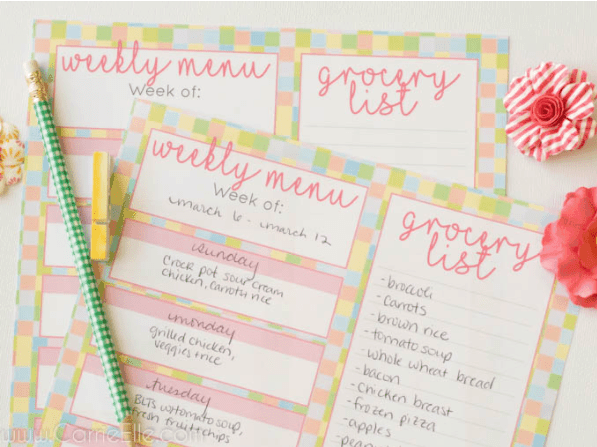 weekly menu
Week of:
grocery
list
weekly menu
Week of:
march 6 - march 12
sunday
Crock pot sour cream
chicken, carrots rice
monday
grilled chicken,
veggies + rice
tuesday
BLTs w/tomato soup,
fresh fruit + chips
grocery
list
- broccoli
- carrots
- brown rice
- tomato soup
- whole wheat bread
- bacon
- chicken breast
- frozen pizza
- apples
www.CarrieElle.com